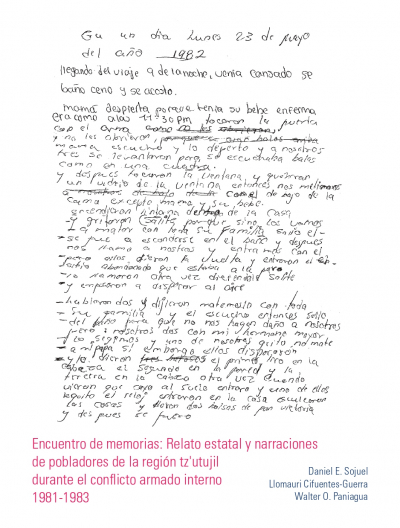 En un día Lunes 23 de mayo
del año 1982
llegando del viaje 9 de la noche, venia cansado se
baño ceno y se acosto.
mamá despierta porque tenia su bebe enferma
era como a las 11:30 pm tocaron la puerta
con el arma como no les abrieron
y no las abrieron, porque se oian balas
mama escucho y lo deperto y a nosotros
tres se levantaron pero se escuchaba balas
como en una
y despues tocaron la ventana, y quebraron
un vidrio de la ventana entonces nos metieron
debajo de la
cama excepto mama y su bebe.
encendieron dentro de la casa
- y gritaron Salite porque sino los vamos
a matar con toda su familia salio el -
- se fue a esconderse en el baño y despues
nos llamo a nosotros y entramos con el
- pero ellos dieron la vuelta y entraron al
sitio abandonado que estaba a la par
- lo llamaron otra vez diciendole salite
- y empezaron a disparar al aire
- hablaron dos y dijeron matemoslo con toda
- su familia y el escucho entonces salio
- del baño para que no nos hagan daño a nosotros
pero nosotros dos con mi hermano mayor
lo seguimos y uno de nosotros grito no mate
a mi papa si embargo ellos dispararon
- y le dieron tres el primer tiro en la
cabeza el segundo en la pared y la
tercera en la cabeza otra vez cuando
vieron que cayo al suelo entraron y uno de ellos
le quito el reloj entraron en la casa quebraron
las cosas y dieron dos balsas de pan victoria
y despues se fueron
Encuentro de memorias: Relato estatal y narraciones
de pobladores de la región tz'utujil
durante el conflicto armado interno
1981-1983
Daniel E. Sojuel
Llomauri Cifuentes-Guerra
Walter O. Paniagua